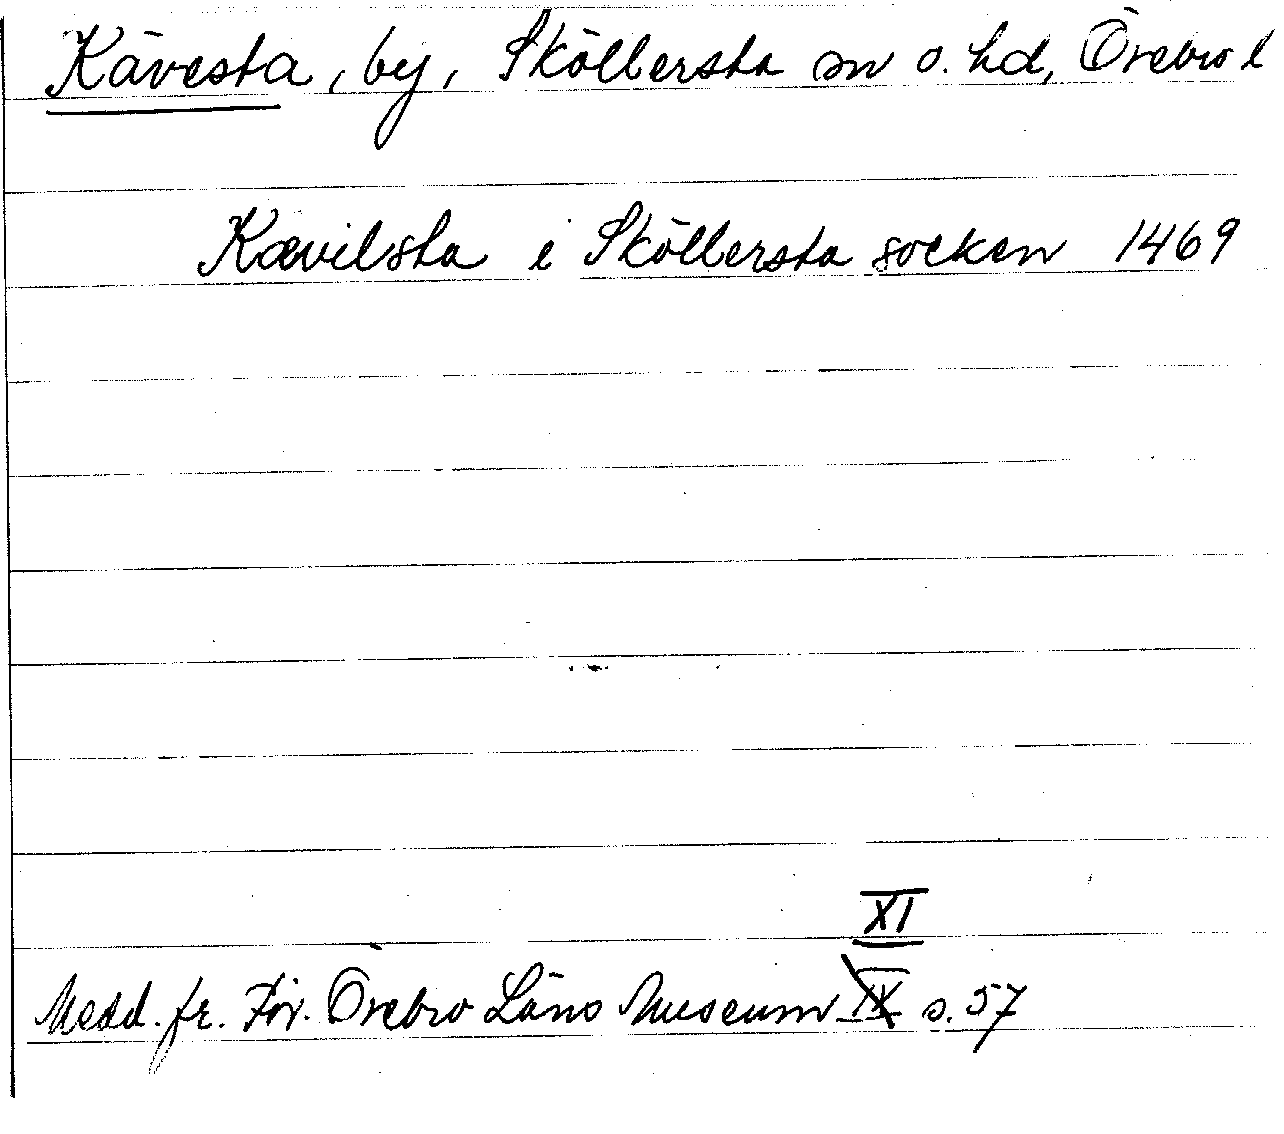 Kävesta, by, Sköllersta sn o. hd, Örebro l
Kævilsta i Sköllersta socken 1469
XI
Medd. fr. För. Örebro Läns Museum IX s. 57